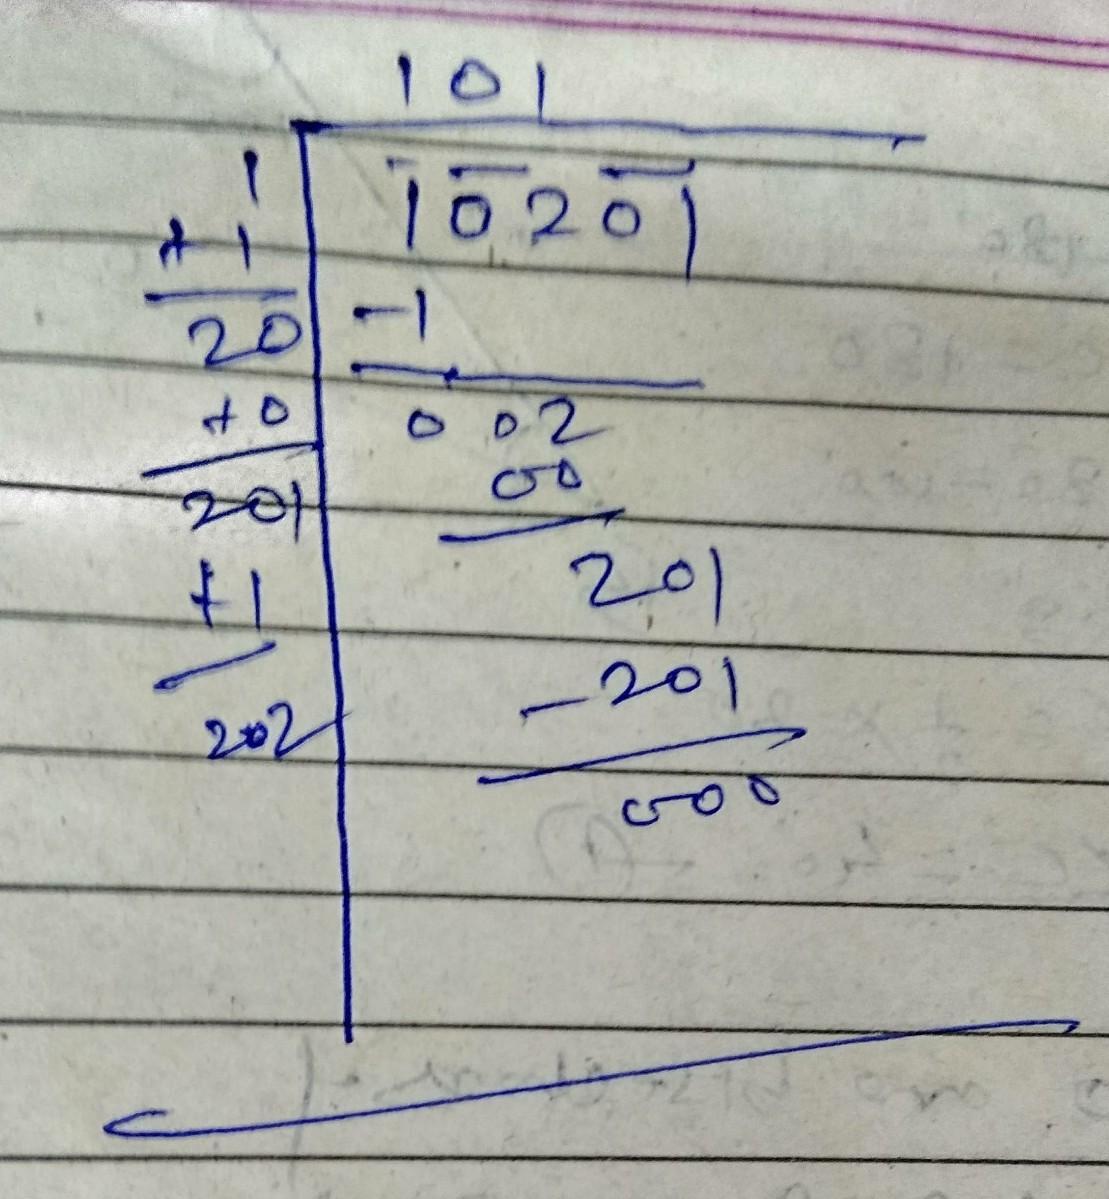 101
1 10201
+1 -1
20 0 02
+0 00
201 201
+1 -201
202 000